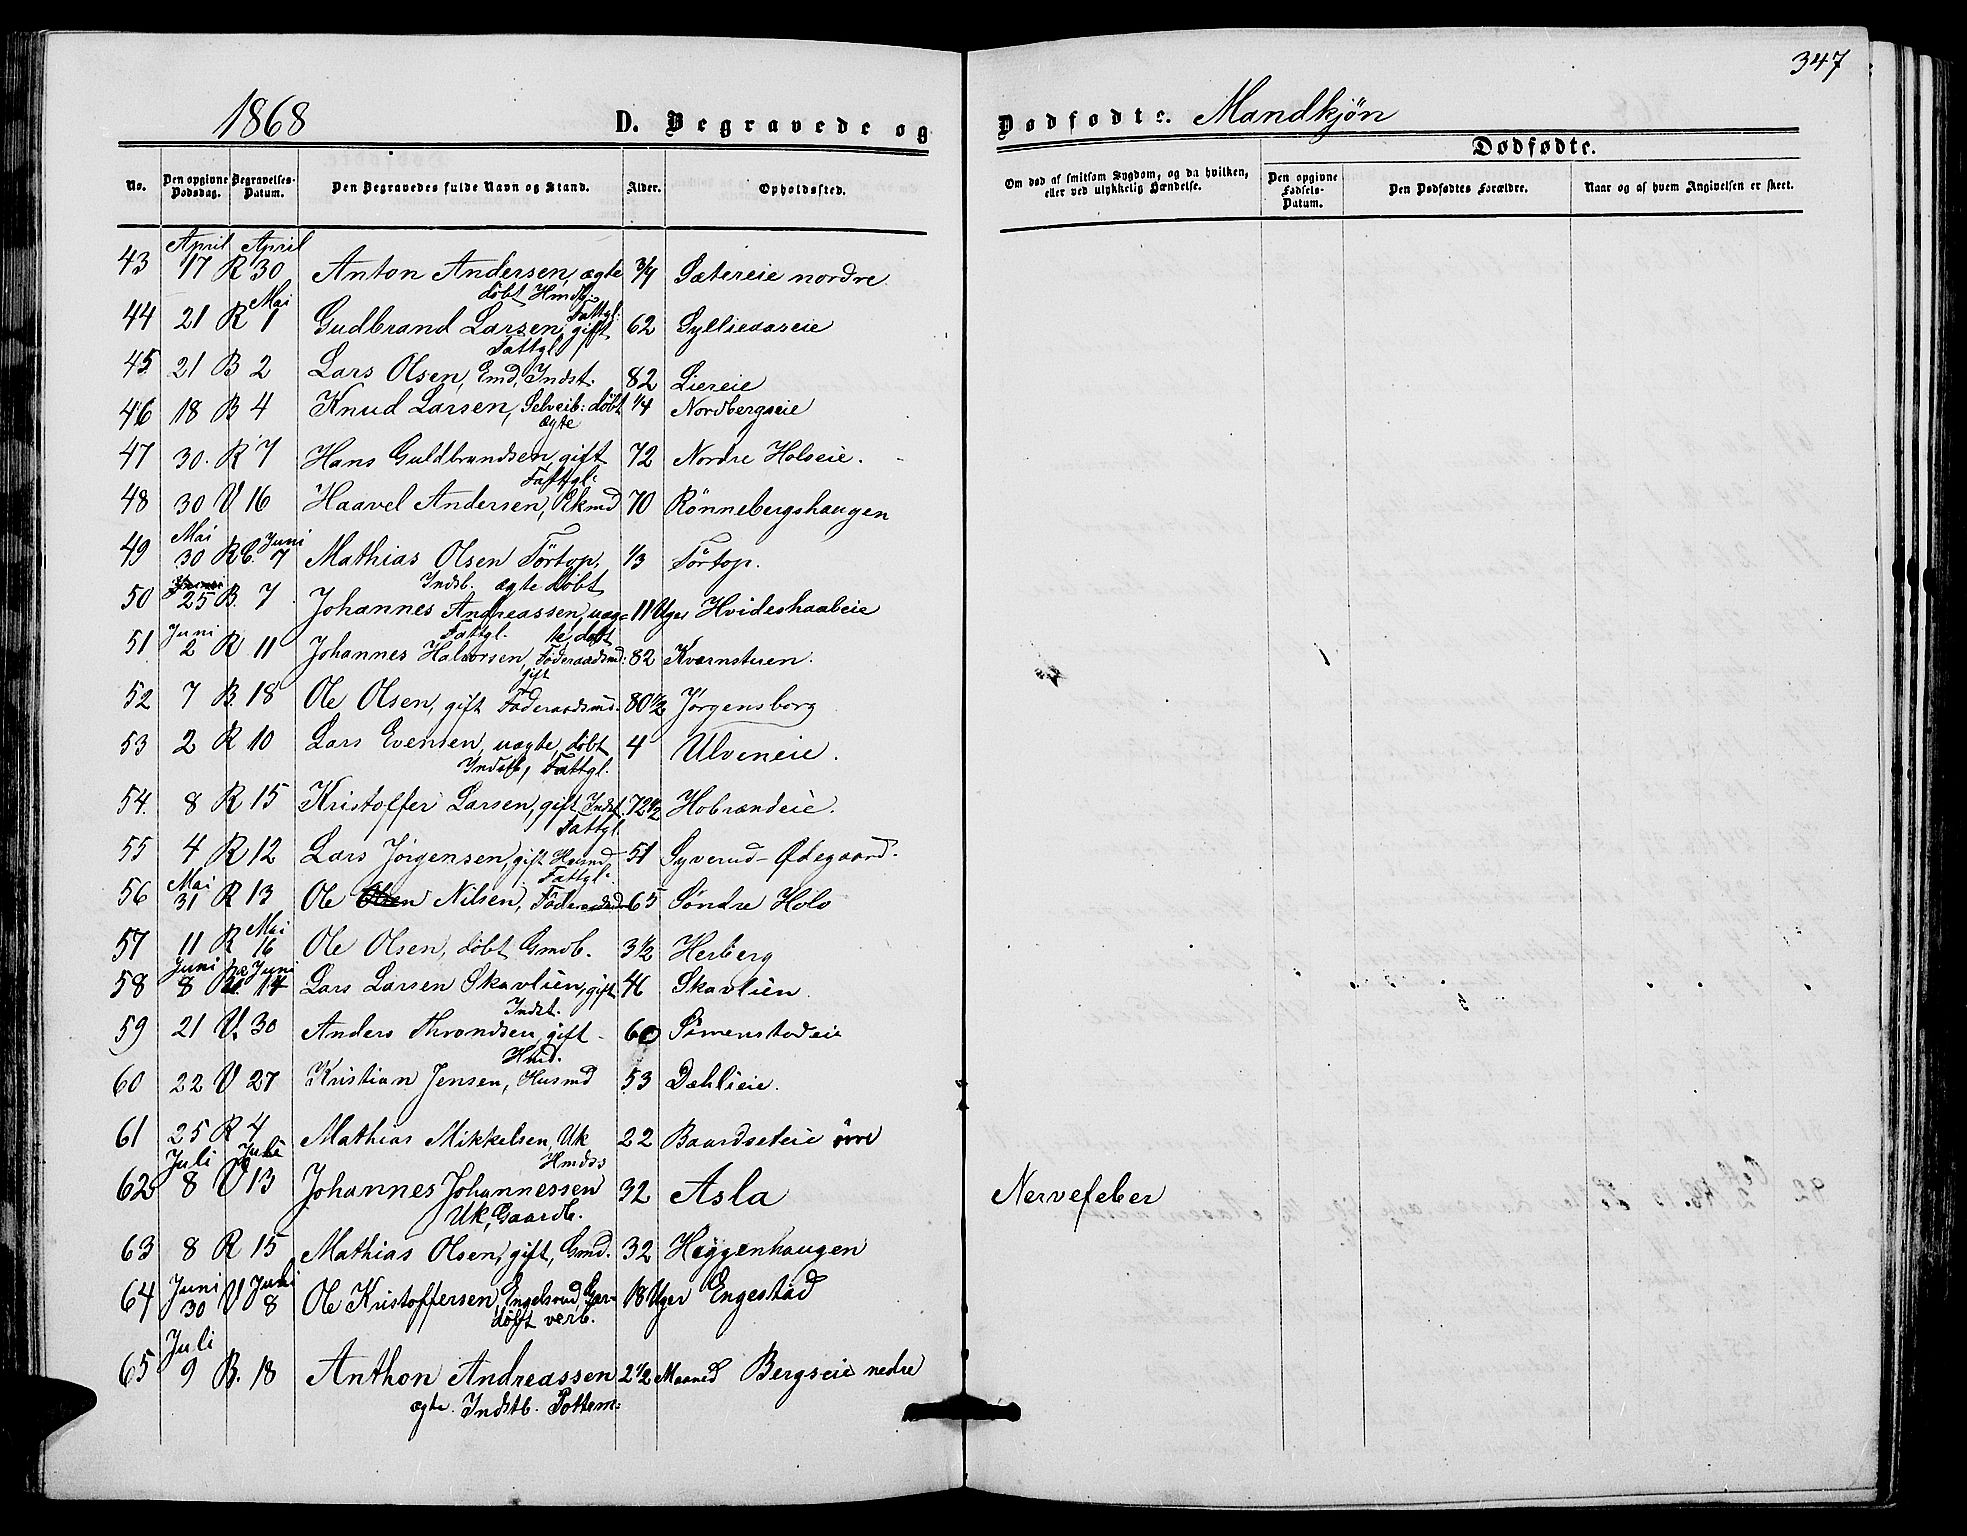 347
1868 D. Begravede og Dødfødte. Mandkjøn
Dødfødte.
No. Den opgivne Dødsdag. Begravelses-Datum. Den Begravedes fulde Navn og Stand. Alder. Opholdssted. Om død af smitsom Sygdom, og da hvilken, eller ved ulykkelig Hændelse. Den opgivne Fødsels-Datum. Den Dødfødtes Forældre. Naar og af hvem Angivelsen er skeet.
April April
43 17 R 30 Anton Andersen, ægte 3/4 Sætereie nordre
døbt Hmdb.
Mai Fattgl:
44 21 R 1 Gudbrand Larsen, gift 62 Sylliaaseie
Fattgl
45 21 B 2 Lars Olsen, Emd, Indst. 82 Liereie
46 18 B 4 Knud Larsen, Selveib: døbt 1/4 Nordbergseie
ægte
47 30. R 7 Hans Guldbrandsen, gift 72 Nordre Holseie.
Fattgl:
48 30 V 16 Haavel Andersen, Ekmd 70 Rönnebergshaugen
Mai Juni
49 30 R 7 Mathias Olsen Törtop, 1/3 Törtop.
Indsb. ægte døbt
50 25 B. 7 Johannes Andreassen, uæg= 11 Uger Hvideshaabeie
Juni Fattgl. te, døbt
51 2 R 11 Johannes Halvorsen, Föderaadsmd: 82 Kværnstuen.
gift
52 7 B. 18 Ole Olsen, gift Föderaadsmd. 80 1/2 Jörgensborg
53 2 R 10 Lars Evensen, uægte, døbt 4 Ulveneie.
Indstb, Fattgl.
54. 8 R 15 Kristoffer Larsen, gift Indst. 72 1/2 Hobrændeie.
Fattgl.
55 4 R 12 Lars Jörgensen, gift Husmd 51 Syverud-Ødegaard.
Mai Fattgl.
56 31 R 13 Ole Olsen Nilsen, Föderaadsmd 65 Söndre Holo
Mai
57 11 R 16 Ole Olsen, döbt Gmdb. 3 1/2 Herberg
Juni Juni
58 8 14 Lars Larsen Skavlien, gift 46 Skavlien
Indst.
59 21 V. 30 Anders Throndsen, gift 60 Simenstadeie
Hmd.
60 22 V 27 Kristian Jensen, Husmd 53 Dæhlieie.
61 25 R 4 Mathias Mikkelsen, Uk 22 Baardseteie övre
Juli Juli Hmdss
62 8 V 13 Johannes Johannessen 32 Asla Nervefeber
Uk, Gaardb.
63 8 R 15 Mathias Olsen, gift, Gmd. 32 Heggenhaugen
Juni Juli
64 30 V 8 Ole Kristoffersen, Engelsrud 18 Uger Engestad
døbt verb.
Juli
65 9 B. 18 Anthon Andreassen 2 1/2 Maaned Bergseie nedre
ægte. Indstb. Pottem: